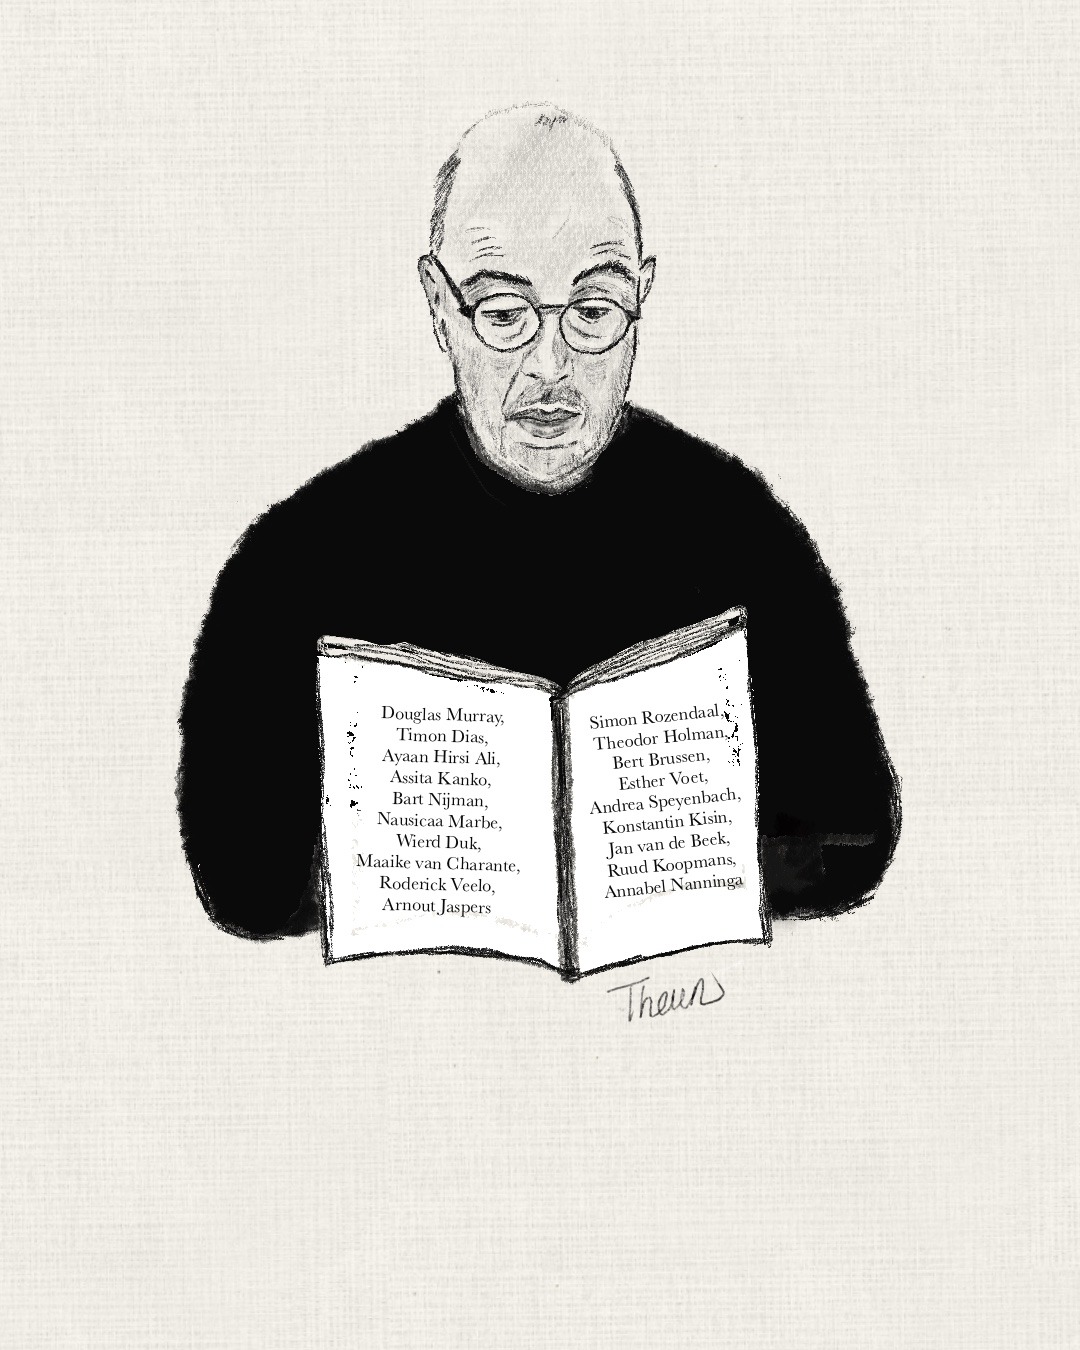 Douglas Murray,
Timon Dias,
Ayaan Hirsi Ali,
Assita Kanko,
Bart Nijman,
Nausicaa Marbe,
Wierd Duk,
Maaike van Charante,
Roderick Veelo,
Arnout Jaspers
Simon Rozendaal,
Theodor Holman,
Bert Brussen,
Esther Voet,
Andrea Speyenbach,
Konstantin Kisin,
Jan van de Beek,
Ruud Koopmans,
Annabel Nanninga
Theun